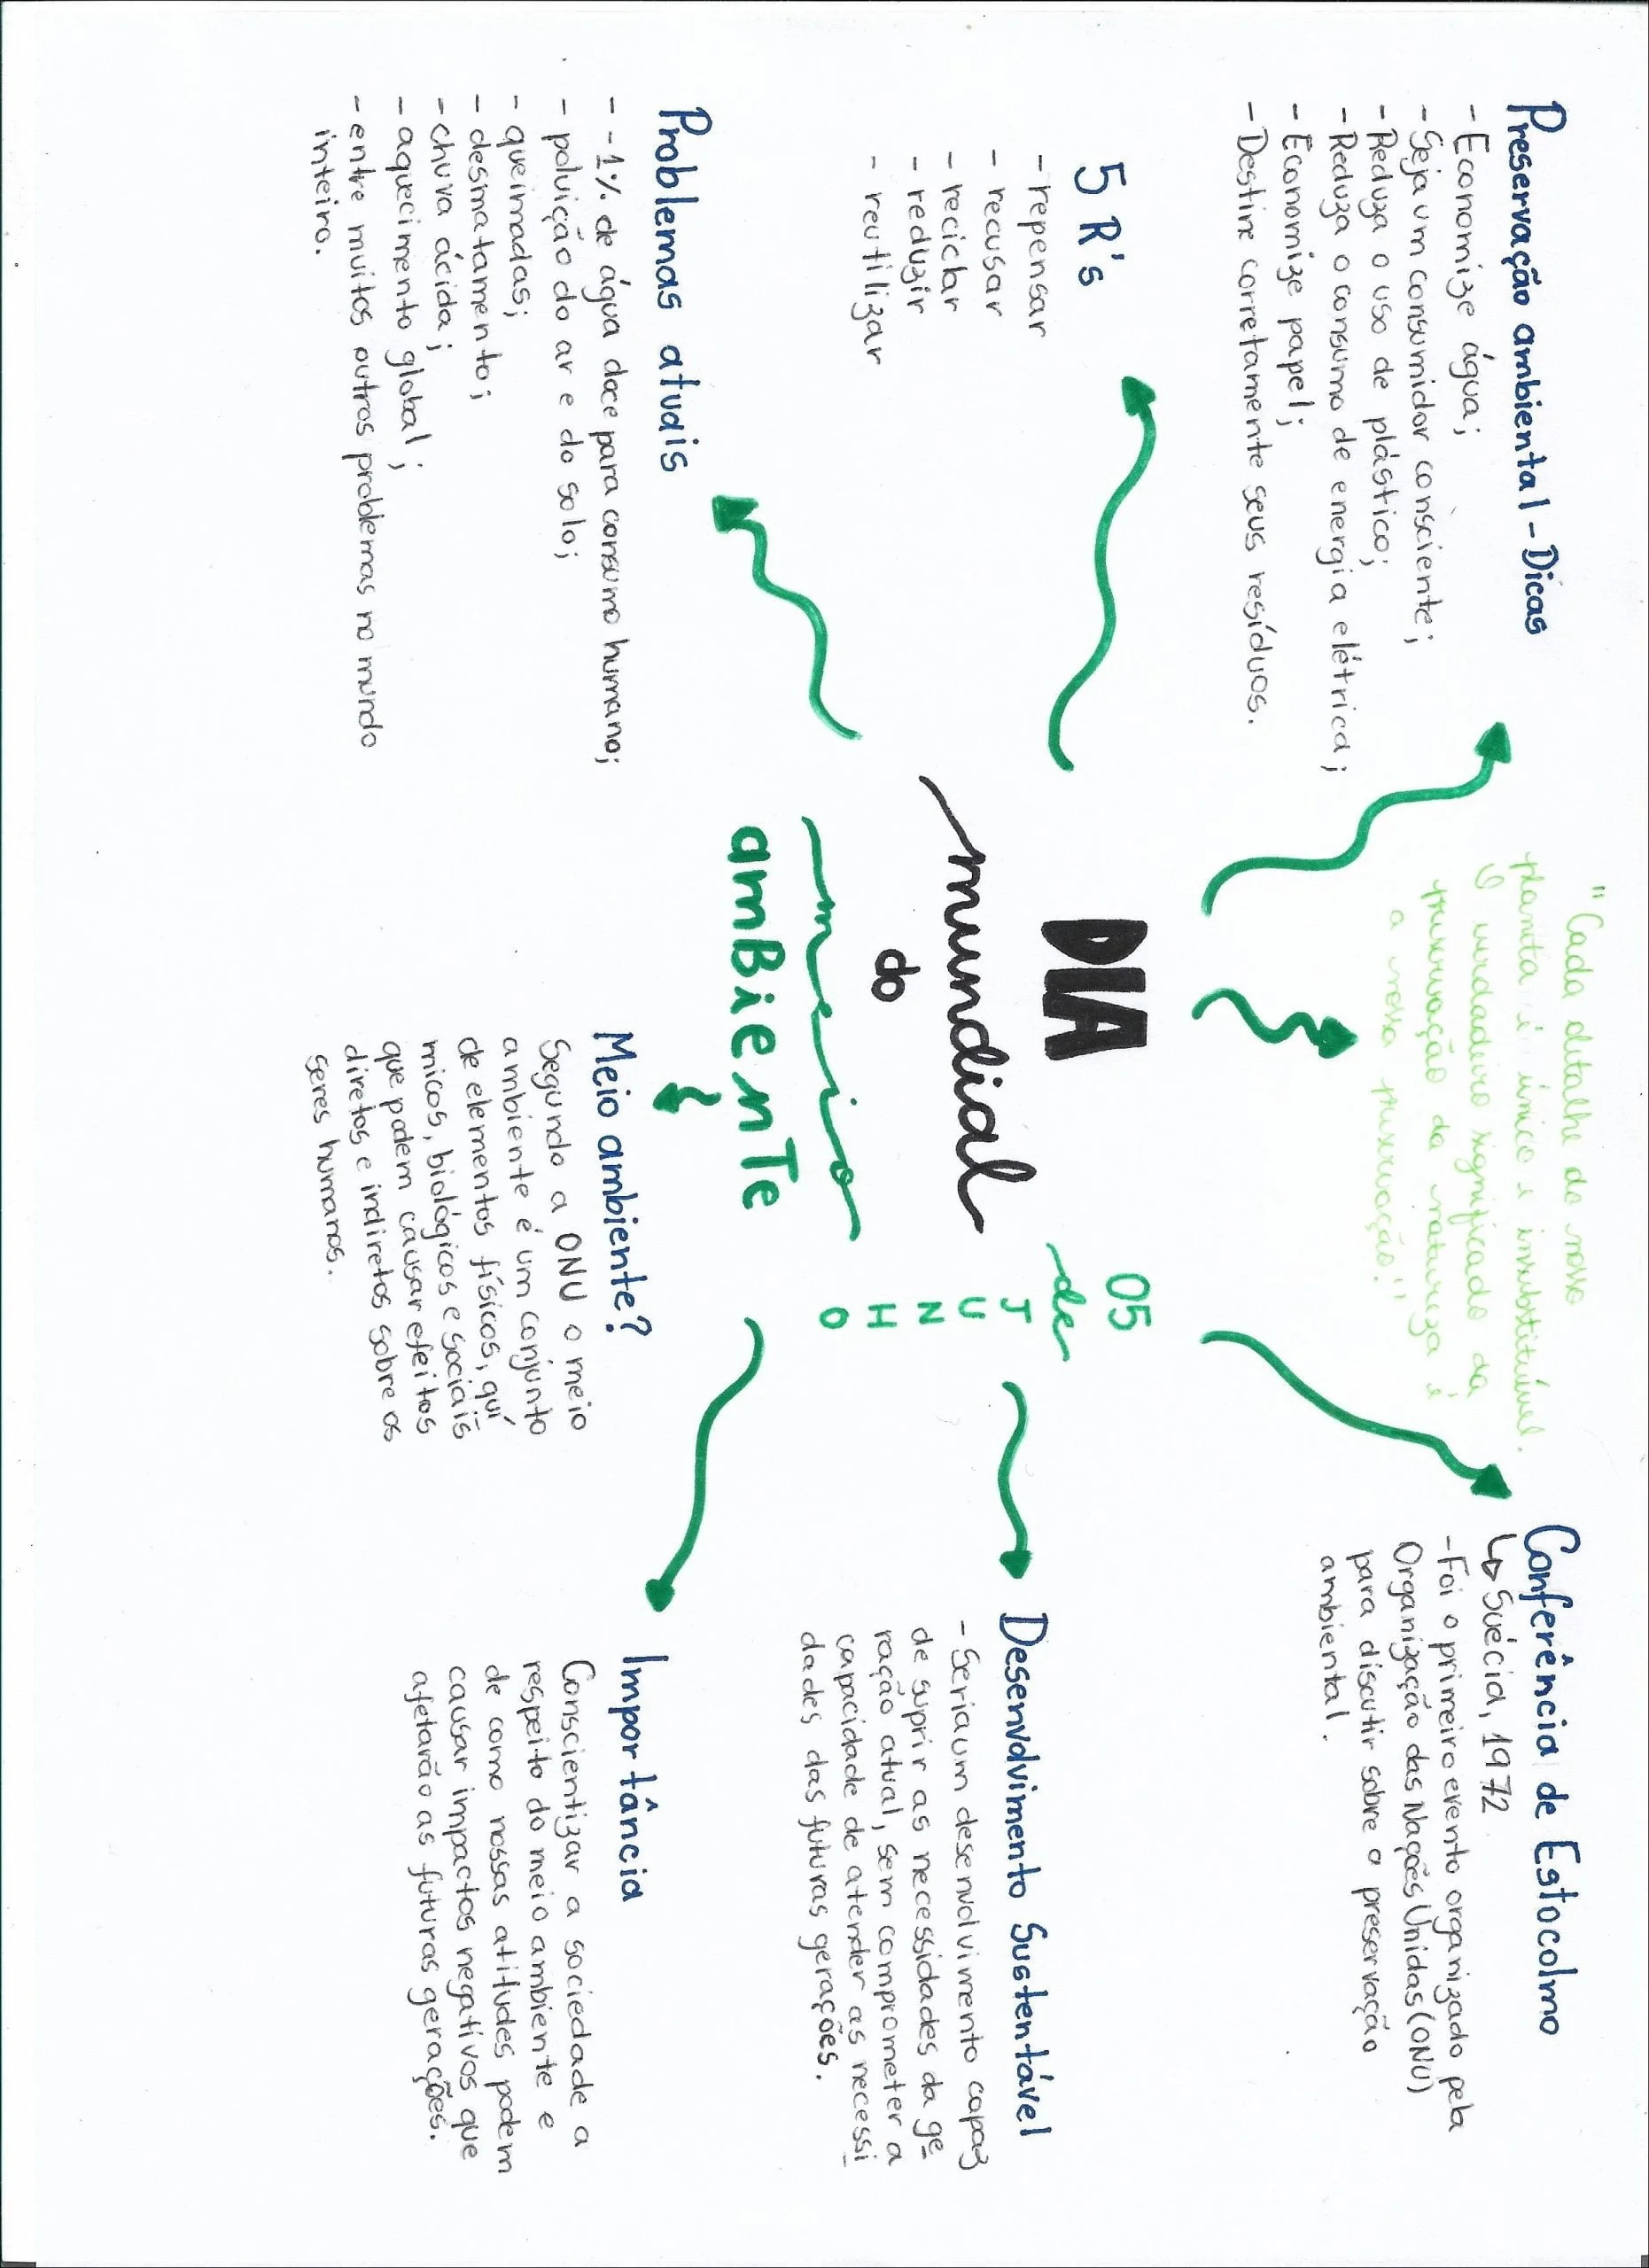 Preservação ambiental - Dicas
- Economize água;
- Seja um consumidor consciente;
- Reduza o uso de plástico;
- Reduza o consumo de energia elétrica;
- Economize papel;
- Destine corretamente seus resíduos.
"Cada detalhe do nosso
planeta é único e insubstituível.
O verdadeiro significado da
preservação da natureza é
a nossa preservação."
Conferência de Estocolmo
↳ Suécia, 1972
- Foi o primeiro evento organizado pela
Organização das Nações Unidas (ONU)
para discutir sobre a preservação
ambiental.
5 R's
- repensar
- recusar
- reciclar
- reduzir
- reutilizar
DIA
mundial
do
meio
amBienTe
05
de
JUNHO
Desenvolvimento Sustentável
- Seria um desenvolvimento capaz
de suprir as necessidades da ge-
ração atual, sem comprometer a
capacidade de atender as necessi
dades das futuras gerações.
Problemas atuais
- -1% de água doce para consumo humano;
- poluição do ar e do solo;
- queimadas;
- desmatamento;
- chuva ácida;
- aquecimento global;
- entre muitos outros problemas no mundo
inteiro.
Meio ambiente?
Segundo a ONU o meio
ambiente é um conjunto
de elementos físicos, quí
micos, biológicos e sociais
que podem causar efeitos
diretos e indiretos sobre os
seres humanos.
Importância
Conscientizar a sociedade a
respeito do meio ambiente e
de como nossas atitudes podem
causar impactos negativos que
afetarão as futuras gerações.